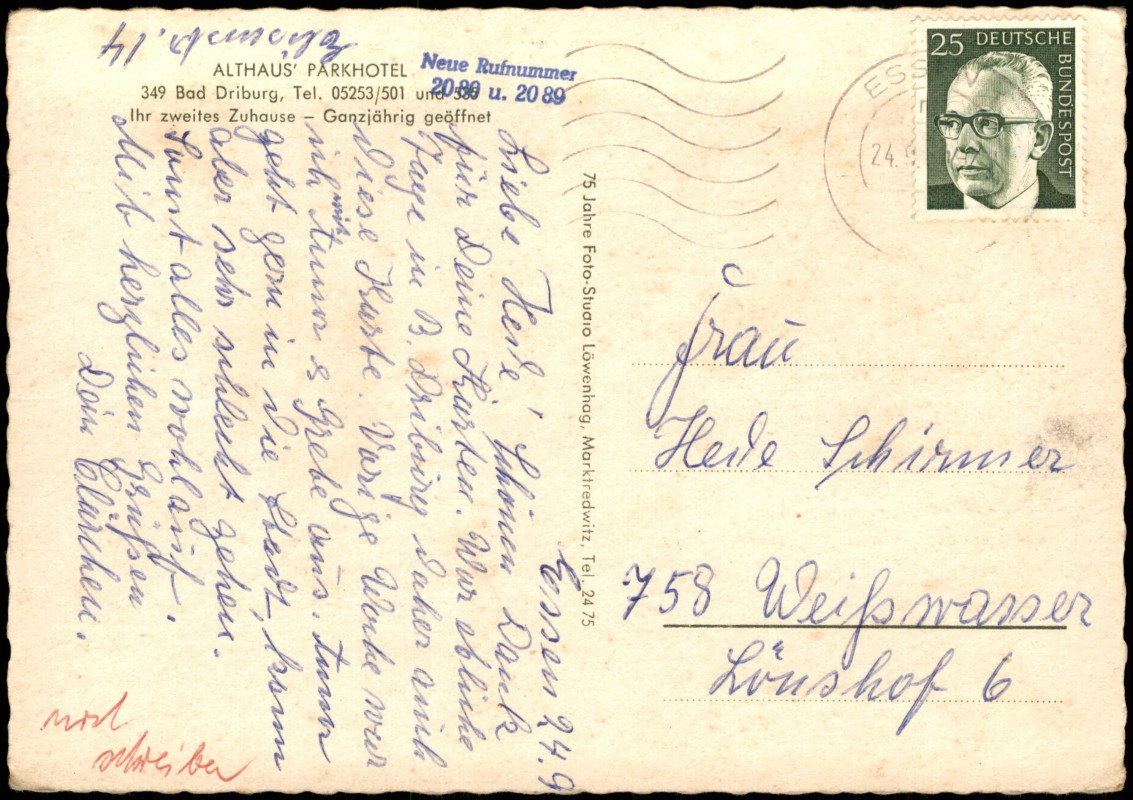 ALTHAUS' PARKHOTEL
349 Bad Driburg, Tel. 05253/501 und 585
Ihr zweites Zuhause – Ganzjährig geöffnet
Neue Rufnummer
2080 u. 2089
Essen 24.9
Liebe Hede! Schönen Dank
für Deine Karten. War etliche
Tage in B. Driburg daher auch
diese Karte. Vorige Woche war
ich mit Anna & Grete aus.
geht gern in die Stadt, kann
aber sehr schlecht gehen.
Sonst alles wohlauf.
Mit herzlichen Grüßen
Dein Clärchen.
75 Jahre Foto-Studio Löwenhag, Marktredwitz, Tel. 24 75
25 DEUTSCHE
BUNDESPOST
ESSEN
24.
Frau
Hede Schirmer
758 Weißwasser
Lönshof 6
noch
schreiben